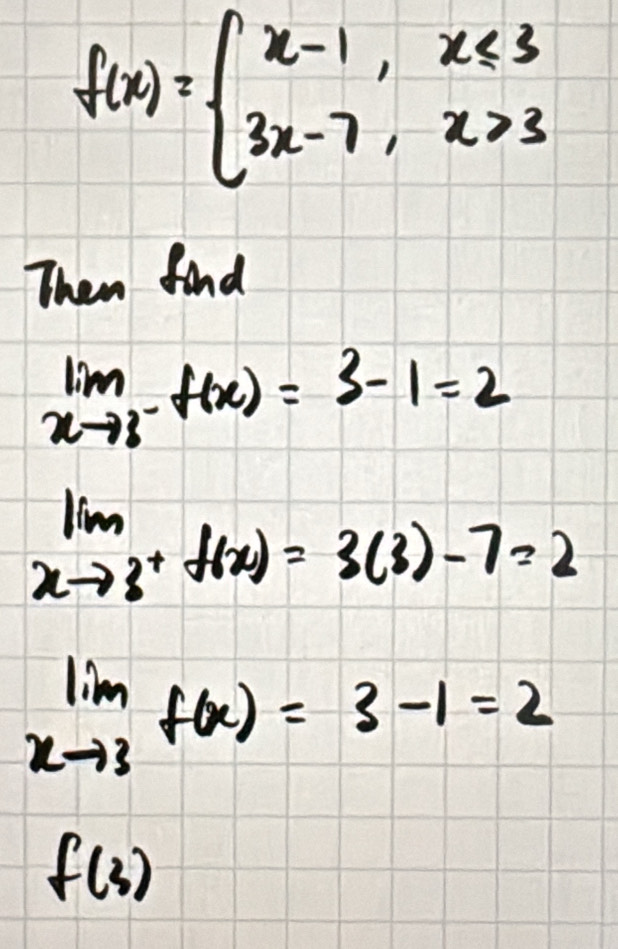 f(x) = { x-1 , x≤3
3x-7 , x>3
Then find
lim x→3⁻ f(x) = 3-1=2
lim x→3⁺ f(x) = 3(3)-7=2
lim x→3 f(x) = 3-1=2
f(3)